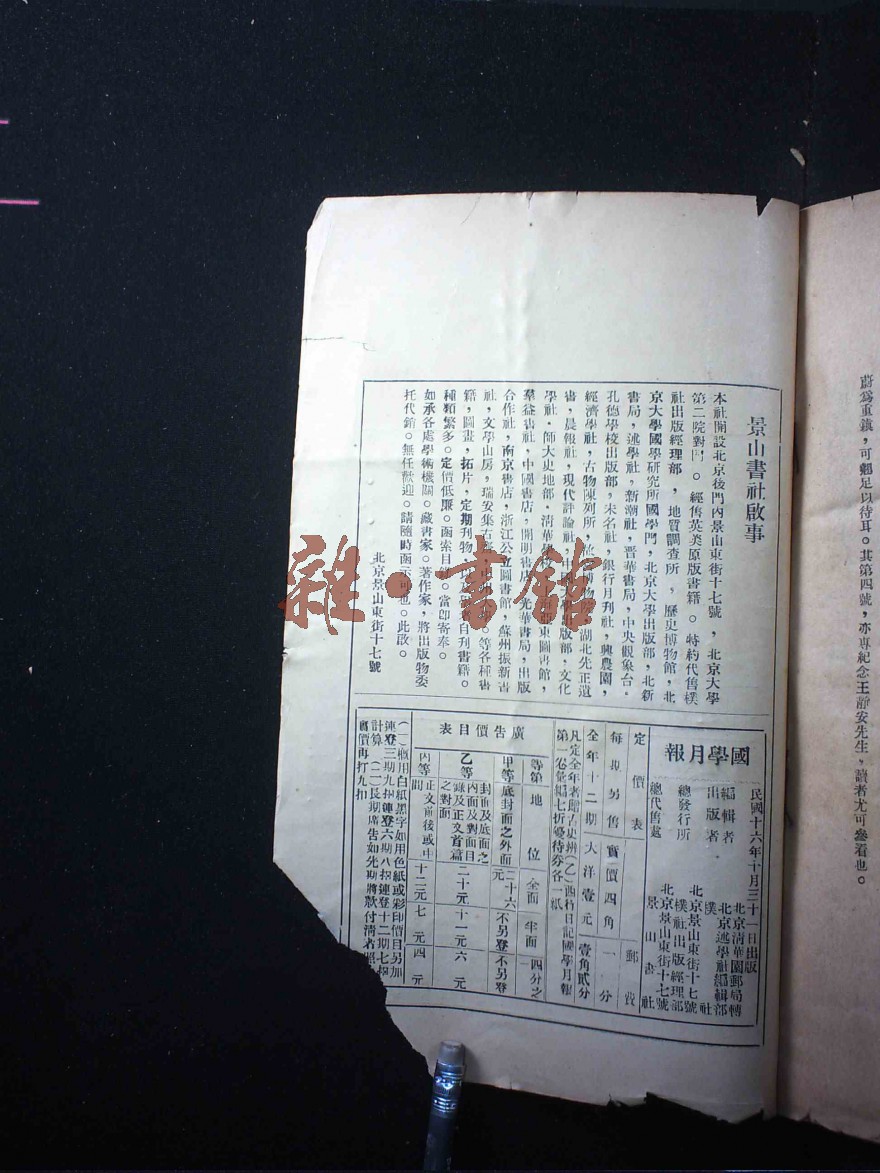 蔚為重鎮，可翹足以待耳。其第四號，亦專紀念王靜安先生，讀者尤可參看也。
景山書社啟事
本社開設北京後門內景山東街十七號，北京大學
第二院對門。經售英美原版書籍。特約代售樸
社出版經理部，地質調查所，歷史博物館，北
京大學國學研究所國學門，北京大學出版部，北新
書局，述學社，新潮社，晉華書局，中央觀象台，
孔德學校出版部，未名社，銀行月刊社，興農園，
經濟學社，古物陳列所，湖北先正遺
書，晨報社，現代評論社，出版部，文化
學社，師大史地部，清華東圖書館，
羣益書社，中國書店，開明書店，光華書局，出版
合作社，南京書店，浙江公立圖書館，蘇州振新書
社，文學山房，瑞安集古齋等各種書
籍，圖畫，拓片，定期刊物，自刊書籍。
種類繁多。定價低廉。函索目錄。當即寄奉。
如承各處學術機關。藏書家。著作家，將出版物委
托代銷。無任歡迎。請隨時函示可也。此啟。
北京景山東街十七號
國學月報
民國十六年十月三十一日出版
編輯者 北京清華園郵局轉 北京述學社編輯部
出版者 樸社
總發行所 北京景山東街十七號 樸社出版經理部
總代售處 北京景山東街十七號 景山書社
定價表 郵費
每期另售 實價四角 一分
全年十二期 大洋壹元 壹角貳分
凡定全年者贈古史辨(乙)西杓日記國學月報
第一卷彙編七折優待券各一紙
廣告價目表
等第 地位 全面 半面 四分之
甲等 底封面之外面 二十六元 不另登 不另登
乙等 封面及底面之內面及對面目錄及正文首篇之對面 二十元 十一元 六元
丙等 正文前後或中間 十二元 七元 四元
(一)概用白紙黑字如用色紙或彩印價目另加
連登三期九扣連登六期八扣連登十二期七扣
計算(二)長期廣告如先期將款付清者照
實價再打九扣
雜·書館